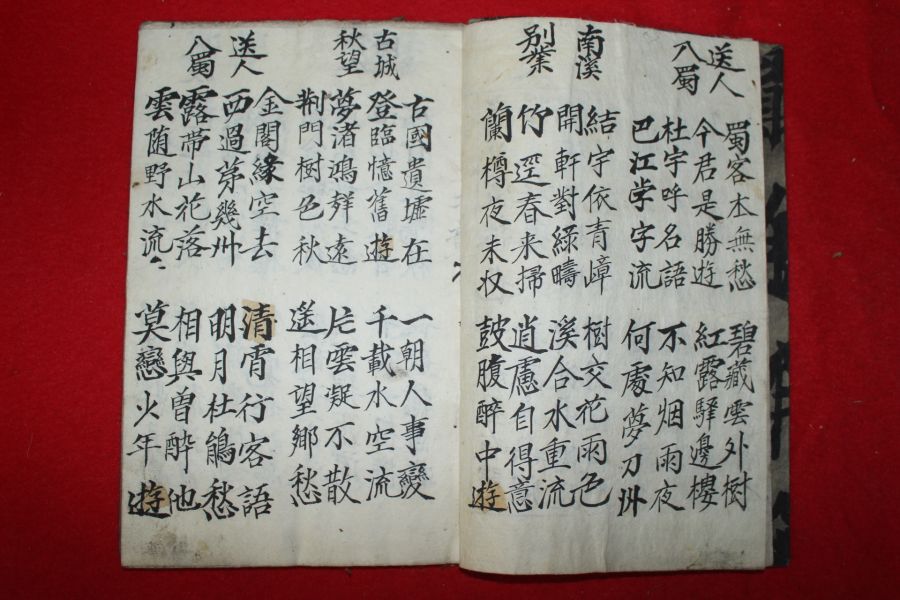 送人
入蜀
蜀客本無愁 碧藏雲外樹
今君是勝遊 紅露驛邊樓
杜宇呼名語 不知烟雨夜
巴江学字流 何處夢刀州
南溪
別業
結宇依青嶂 樹交花雨色
開軒對綠疇 溪合水重流
竹逕春来掃 逍慮自得意
蘭樽夜未收 鼓腹醉中遊
古城
秋望
古國遺墟在 一朝人事變
登臨憶舊遊 千載水空流
夢渚鴻声遠 片雲凝不散
荆門樹色秋 遥相望鄉愁
送人
入蜀
金閣緣空去 清宵行客語
西過茅幾州 明月杜鵑愁
露帶山花落 相與曾醉他
雲随野水流 莫戀火年遊